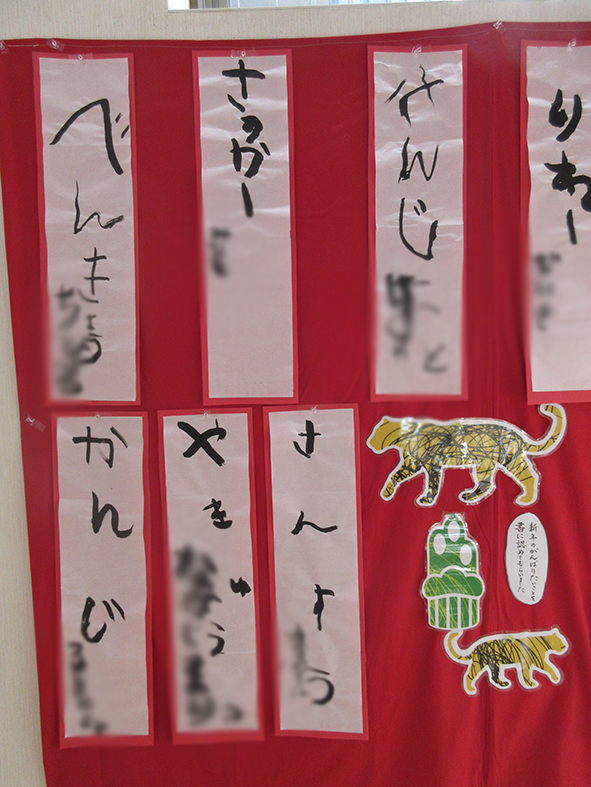 りれー
かんじ
さっかー
べんきょう
新年のがんばりたいことを
書に認めてもらいました
さんすう
やきゅう
かんじ